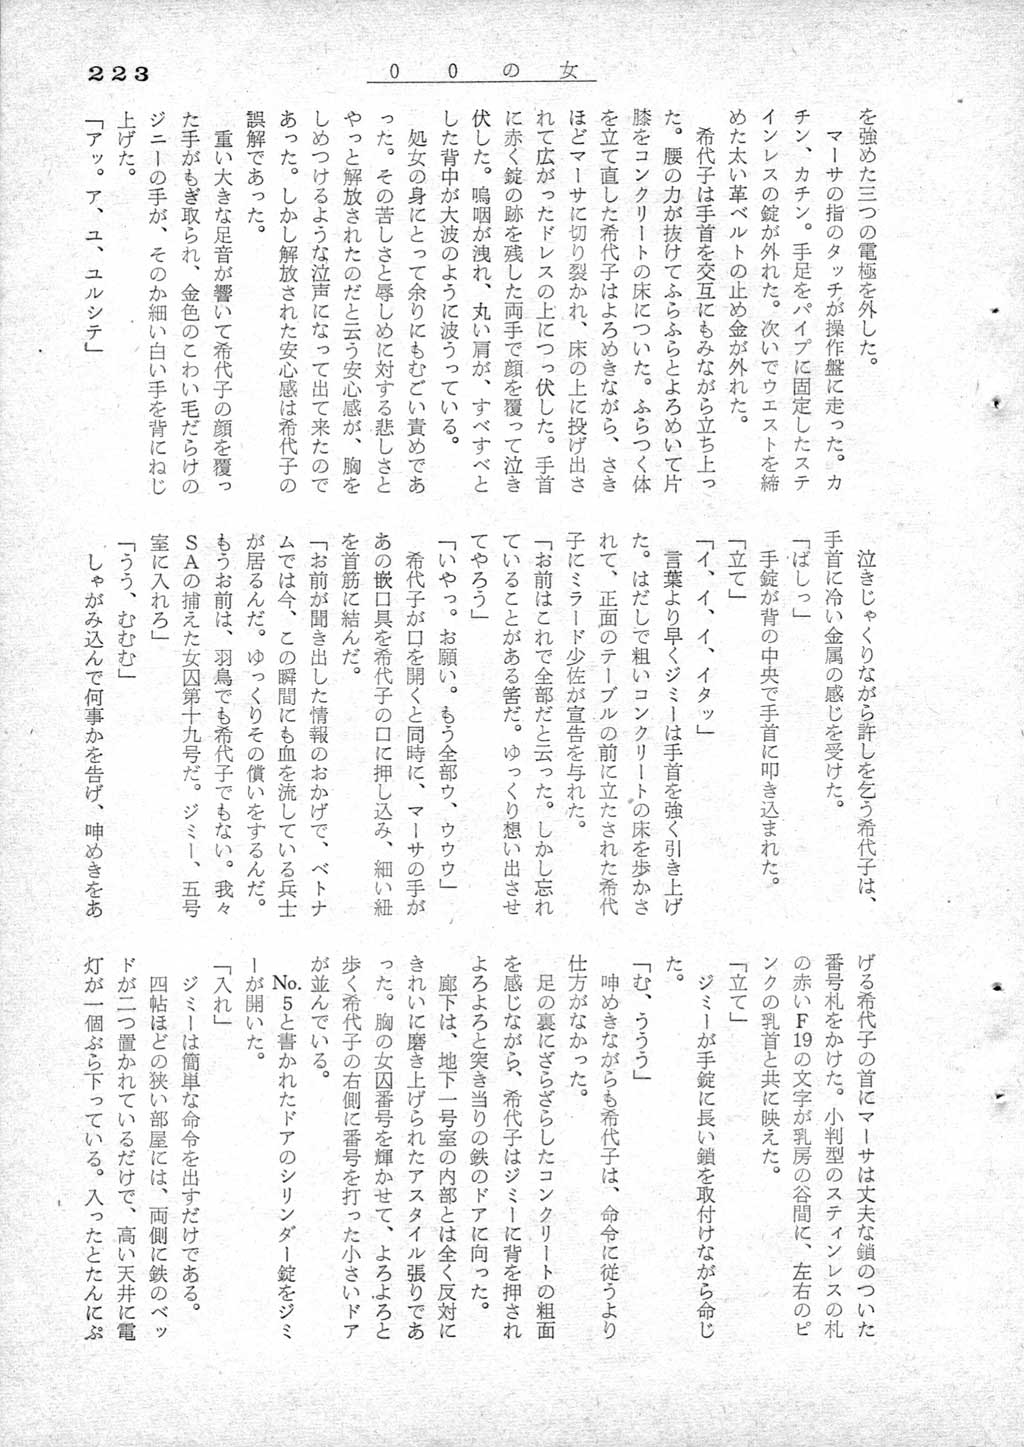 223
00の女
を強めた三つの電極を外した。
マーサの指のタッチが操作盤に走った。カ
チン、カチン。手足をパイプに固定したステ
インレスの錠が外れた。次いでウエストを締
めた太い革ベルトの止め金が外れた。
希代子は手首を交互にもみながら立ち上っ
た。腰の力が抜けてふらふらとよろめいて片
膝をコンクリートの床についた。ふらつく体
を立て直した希代子はよろめきながら、さき
ほどマーサに切り裂かれ、床の上に投げ出さ
れて広がったドレスの上につっ伏した。手首
に赤く錠の跡を残した両手で顔を覆って泣き
伏した。嗚咽が洩れ、丸い肩が、すべすべと
した背中が大波のように波うっている。
処女の身にとって余りにもむごい責めであ
った。その苦しさと辱しめに対する悲しさと
やっと解放されたのだと云う安心感が、胸を
しめつけるような泣声になって出て来たので
あった。しかし解放された安心感は希代子の
誤解であった。
重い大きな足音が響いて希代子の顔を覆っ
た手がもぎ取られ、金色のこわい毛だらけの
ジニーの手が、そのか細い白い手を背にねじ
上げた。
「アッ。ア、ユ、ユルシテ」
泣きじゃくりながら許しを乞う希代子は、
手首に冷い金属の感じを受けた。
「ばしっ」
手錠が背の中央で手首に叩き込まれた。
「立て」
「イ、イ、イ、イタッ」
言葉より早くジミーは手首を強く引き上げ
た。はだしで粗いコンクリートの床を歩かさ
れて、正面のテーブルの前に立たされた希代
子にミラード少佐が宣告を与れた。
「お前はこれで全部だと云った。しかし忘れ
ていることがある筈だ。ゆっくり想い出させ
てやろう」
「いやっ。お願い。もう全部ウ、ウウウ」
希代子が口を開くと同時に、マーサの手が
あの嵌口具を希代子の口に押し込み、細い紐
を首筋に結んだ。
「お前が聞き出した情報のおかげで、ベトナ
ムでは今、この瞬間にも血を流している兵士
が居るんだ。ゆっくりその償いをするんだ。
もうお前は、羽鳥でも希代子でもない。我々
SAの捕えた女囚第十九号だ。ジミー、五号
室に入れろ」
「うう、むむむ」
しゃがみ込んで何事かを告げ、呻めきをあ
げる希代子の首にマーサは丈夫な鎖のついた
番号札をかけた。小判型のスティンレスの札
の赤いF19の文字が乳房の谷間に、左右のピ
ンクの乳首と共に映えた。
「立て」
ジミーが手錠に長い鎖を取付けながら命じ
た。
「む、ううう」
呻めきながらも希代子は、命令に従うより
仕方がなかった。
足の裏にざらざらしたコンクリートの粗面
を感じながら、希代子はジミーに背を押され
よろよろと突き当りの鉄のドアに向った。
廊下は、地下一号室の内部とは全く反対に
きれいに磨き上げられたアスタイル張りであ
った。胸の女囚番号を輝かせて、よろよろと
歩く希代子の右側に番号を打った小さいドア
が並んでいる。
No.5と書かれたドアのシリンダー錠をジミ
ーが開いた。
「入れ」
ジミーは簡単な命令を出すだけである。
四帖ほどの狭い部屋には、両側に鉄のベッ
ドが二つ置かれているだけで、高い天井に電
灯が一個ぶら下っている。入ったとたんにぷ